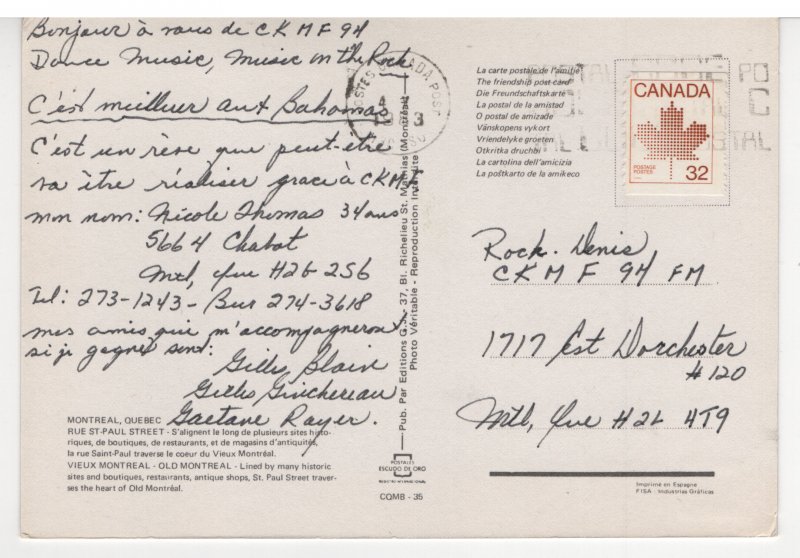 Bonjour à vous de CKMF 94
Dance Music, Music on the Rock
C'est meilluer aux Bahamas
C'est un rêve que peut-être
va être réaliser grace à CKMF
mon nom: Nicole Thomas 34 ans
5664 Chabot
Mtl, Que H2G 2S6
Tel: 273-1243 - Bur 274-3618
mes amis qui m'accompagneront
si je gagne sont:
Gilly Blain
Gilles Guichereau
Gaetane Rayer.
MONTREAL, QUEBEC
RUE ST-PAUL STREET - S'alignent le long de plusieurs sites histo-
riques, de boutiques, de restaurants, et de magasins d'antiquités,
la rue Saint-Paul traverse le coeur du Vieux Montréal.
VIEUX MONTREAL - OLD MONTREAL - Lined by many historic
sites and boutiques, restaurants, antique shops, St. Paul Street traver-
ses the heart of Old Montréal.
Pub. Par Editions G.S. - 37, Bl. Richelieu St. Mathias (Montréal)
Photo Véritable - Reproduction Interdite
POSTALES
ESCUDO DE ORO
CQMB - 35
La carte postale de l'amitié
The friendship post card
Die Freundschaftskarte
La postal de la amistad
O postal de amizade
Vänskapens vykort
Vriendelyke groeten
Otkritka druchbi
La cartolina dell'amicizia
La poŝtkarto de la amikeco
CANADA
POSTAGE
POSTES
32
Rock. Denis
CKMF 94 FM
1717 Est Dorchester
#120
Mtl, Que H2L 4T9
Imprimé en Espagne
FISA - Industrias Gráficas